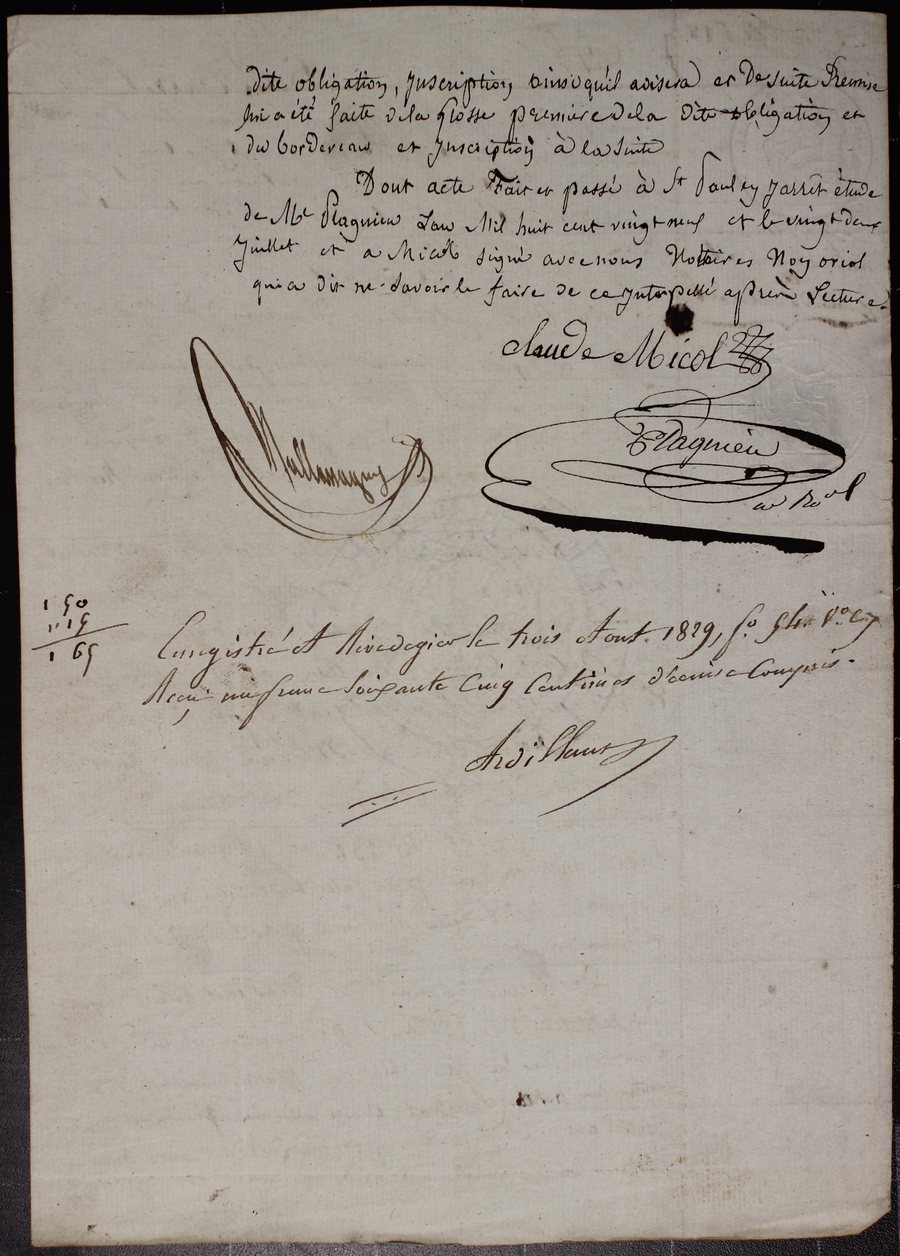 dite obligation, Inscription ainsi qu'il avisera et De suite Remise
lui a été faite de la Grosse premiere de la dite obligation et
du bordereau et Inscription à la suite
Dont acte Fait et passé à St Paul en Jarrêt étude
de Me Plagnieu Lan Mil huit cent vingt neuf et le vingt deux
Juillet et a Micol signé avec nous Notaires Non oriol
qui a dit ne savoir le faire de ce Interpellé après Lecture.
Claude Micol
Plagnieu
1 50
" 15
1 65
Enregistré à Rivedegier le trois Aout 1829, fo 54 Vo C 7
Reçu un franc soixante Cinq Centimes decime Compris.
Ardillau